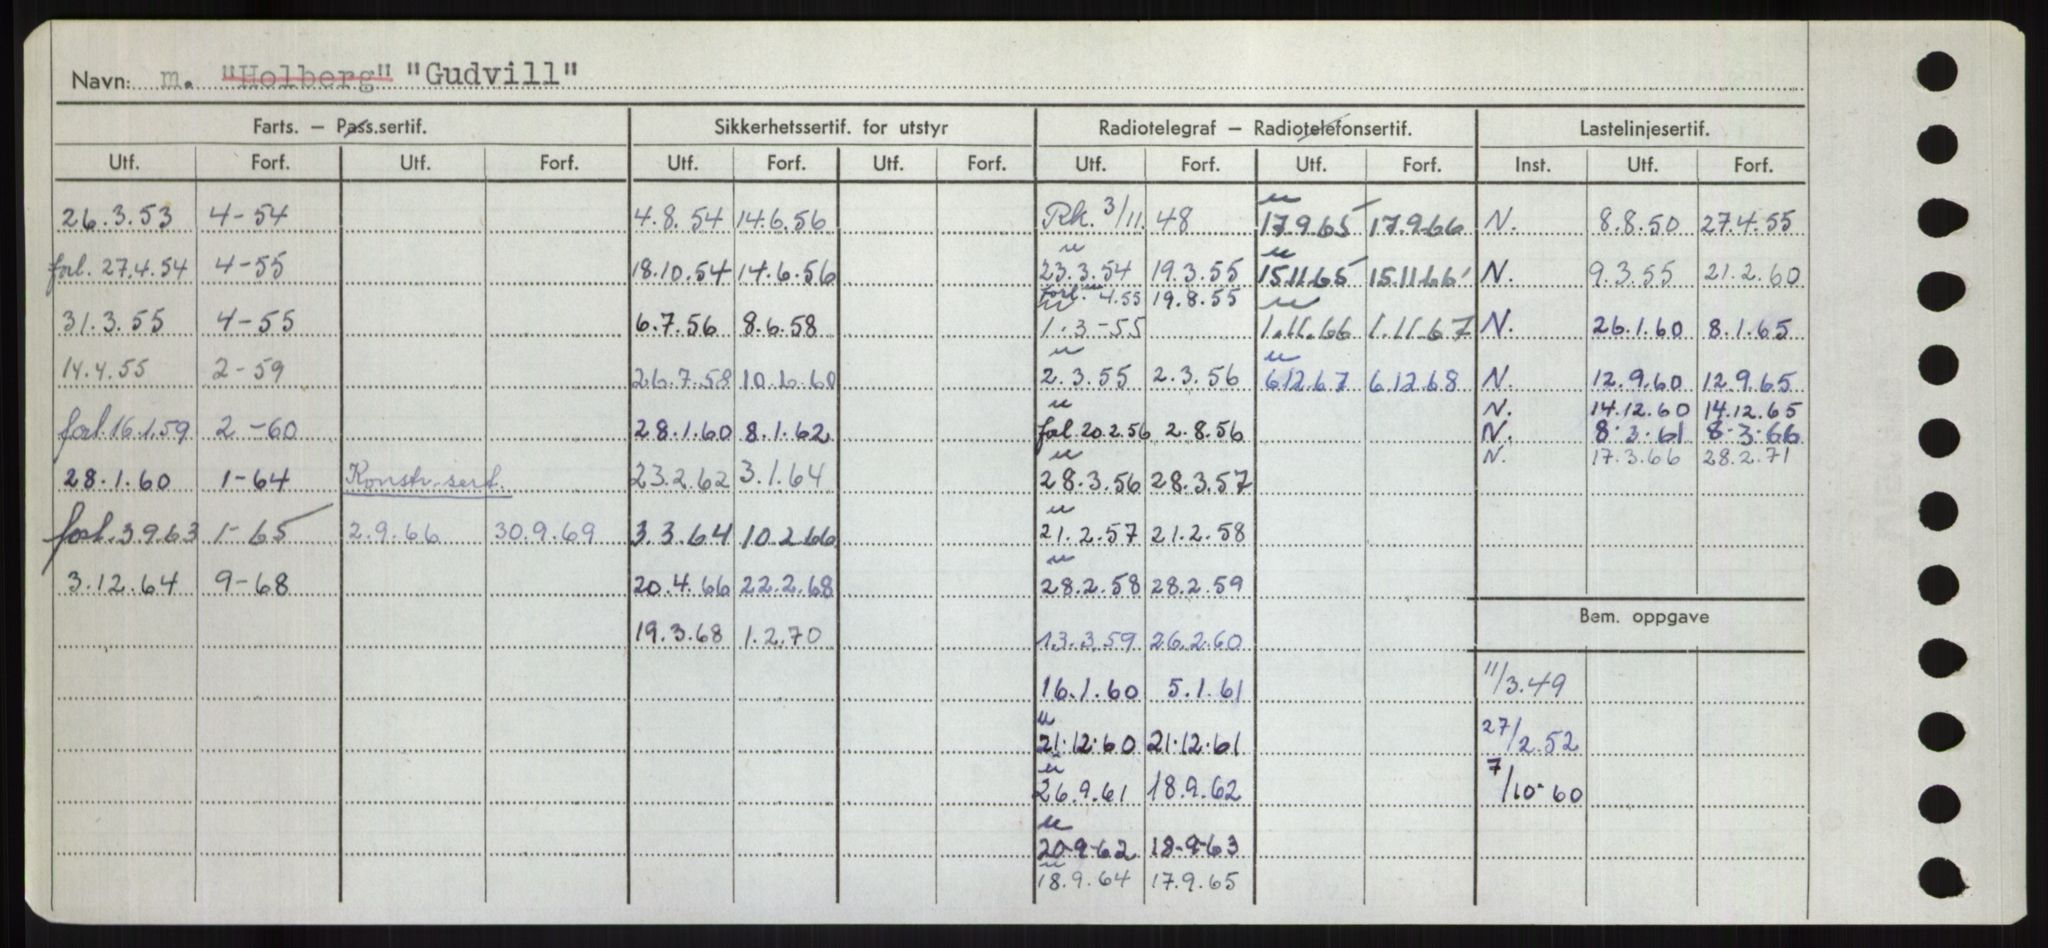 Navn: m. "Holberg" "Gudvill"
Farts. – Pass.sertif. Sikkerhetssertif. for utstyr Radiotelegraf – Radiotelefonsertif. Lastelinjesertif.
Utf. Forf. Utf. Forf. Utf. Forf. Utf. Forf. Utf. Forf. Utf. Forf. Inst. Utf. Forf.
26.3.53 4-54 4.8.54 14.6.56 Rk. 3/11. 48 u 17.9.65 17.9.66 N. 8.8.50 27.4.55
forl. 27.4.54 4-55 18.10.54 14.6.56 u 23.3.54 19.3.55 u 15.11.65 15.11.66 N. 9.3.55 21.2.60
forl. 4.55 19.8.55
31.3.55 4-55 6.7.56 8.6.58 u 1.3-55 u 1.11.66 1.11.67 N. 26.1.60 8.1.65
14.4.55 2-59 26.7.58 10.6.60 u 2.3.55 2.3.56 u 6.12.67 6.12.68 N. 12.9.60 12.9.65
N. 14.12.60 14.12.65
forl. 16.1.59 2-60 28.1.60 8.1.62 u fol. 20.2.56 2.8.56 N. 8.3.61 8.3.66
N. 17.3.66 28.2.71
28.1.60 1-64 Konstr.sert. 23.2.62 3.1.64 u 28.3.56 28.3.57
forl. 3.9.63 1-65 2.9.66 30.9.69 3.3.64 10.2.66 u 21.2.57 21.2.58
3.12.64 9-68 20.4.66 22.2.68 u 28.2.58 28.2.59
Bem. oppgave
19.3.68 1.2.70 13.3.59 26.2.60
16.1.60 5.1.61 11/3.49
u 21.12.60 21.12.61 27/2.52
u 26.9.61 18.9.62 7/10.60
u 20-9-62 18-9-63
u 18.9.64 17.9.65